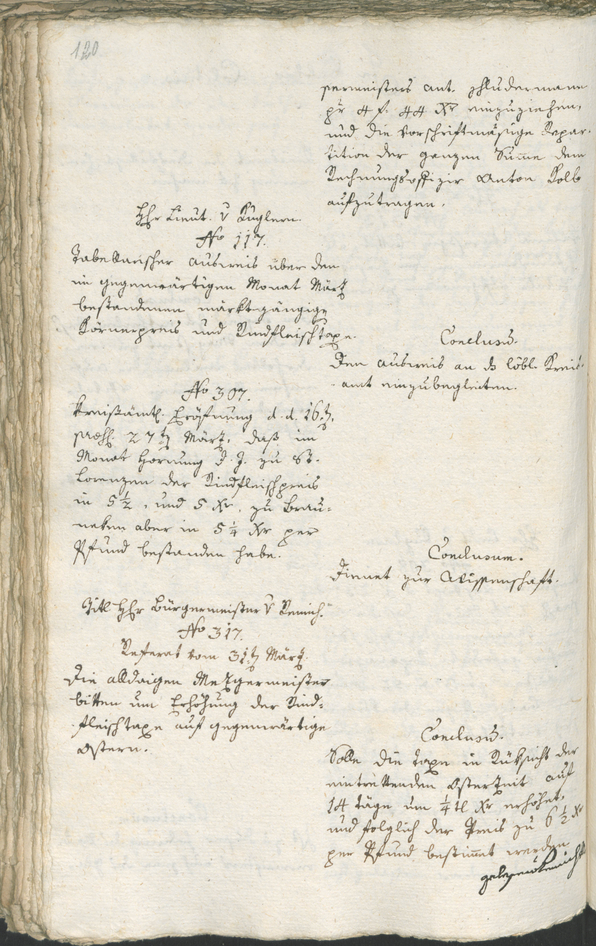 120
germeisters Ant. Schludermann
pr 4 f. 44 Xr einzuziehen,
und die vorschriftmäsige Repar-
tition der ganzen Summe dem
Rechnungsoffizir Anton Kolb
aufzutragen.
Hr Lieut. v Kuglern.
No 117.
Tabellarischer Ausweis über den
im gegenwärtigen Monat März
bestandenen märktegängige
Körnerpreis und Rindfleischtaxe.
Conclusu.
Den Ausweis an ds löbl. Kreis-
amt einzubegleiten.
No 307.
Kreisämtl. Eröfnung d. d. 16t,
praes. 27tn März, daß im
Monat Hornung d. J. zu St.
Lorenzen der Rindfleischpreis
in 5½, und 5 Xr, zu Brau-
neken aber in 5¼ Xr per
Pfund bestanden habe.
Conclusum.
Dienet zur Wissenschaft.
Titl Hr Bürgermeister v
No 317.
Referat vom 31tn März.
Die alldaigen Metzgermeister
bitten um Erhöhung der Rind-
fleischtaxe auf gegenwärtige
Ostern.
Conclusu.
Solle die Taxe in Rücksicht der
eintrettenden Osterzeit auf
14 Täge um ¼tl Xr erhöhet,
und folglich der Preis zu 6½ Xr
per Pfund bestimmt werden